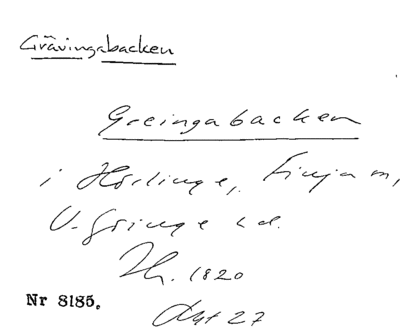 Grävingabacken
Greingabacken
i Hörlinge, Finja sn,
V. Göinge hd.
Th. 1820
Akt 27
Nr 8185.